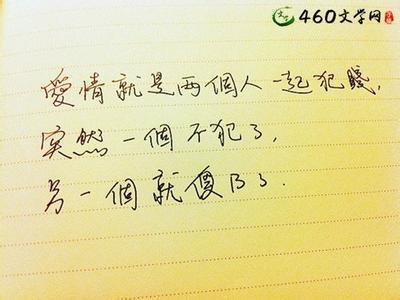 460文学网
愛情就是两個人一起犯賤,
突然一個不犯了,
另一個就傻B了.